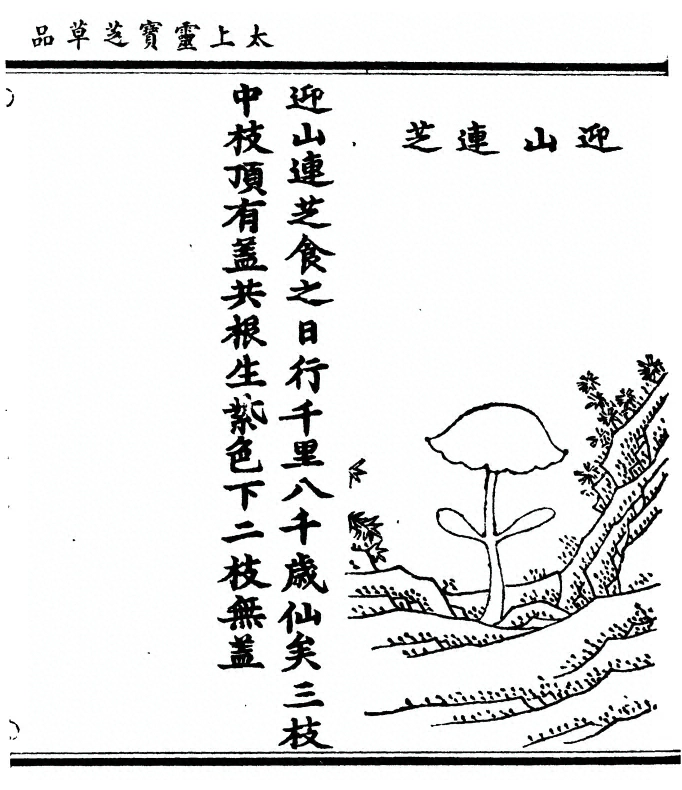 太上靈寶芝草品
迎山連芝
迎山連芝食之日行千里八千歲仙矣三枝
中枝頂有蓋共根生紫色下二枝無蓋